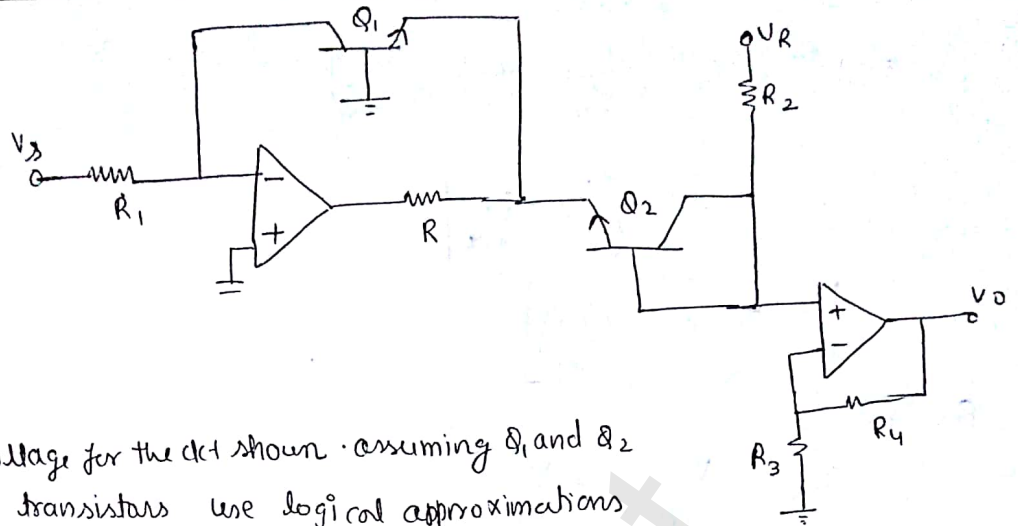 Q1
VR
R2
Vs
R1
-
+
R
Q2
+
-
Vo
R4
R3
for the ckt shown . assuming Q1 and Q2
transistors use logical approximations